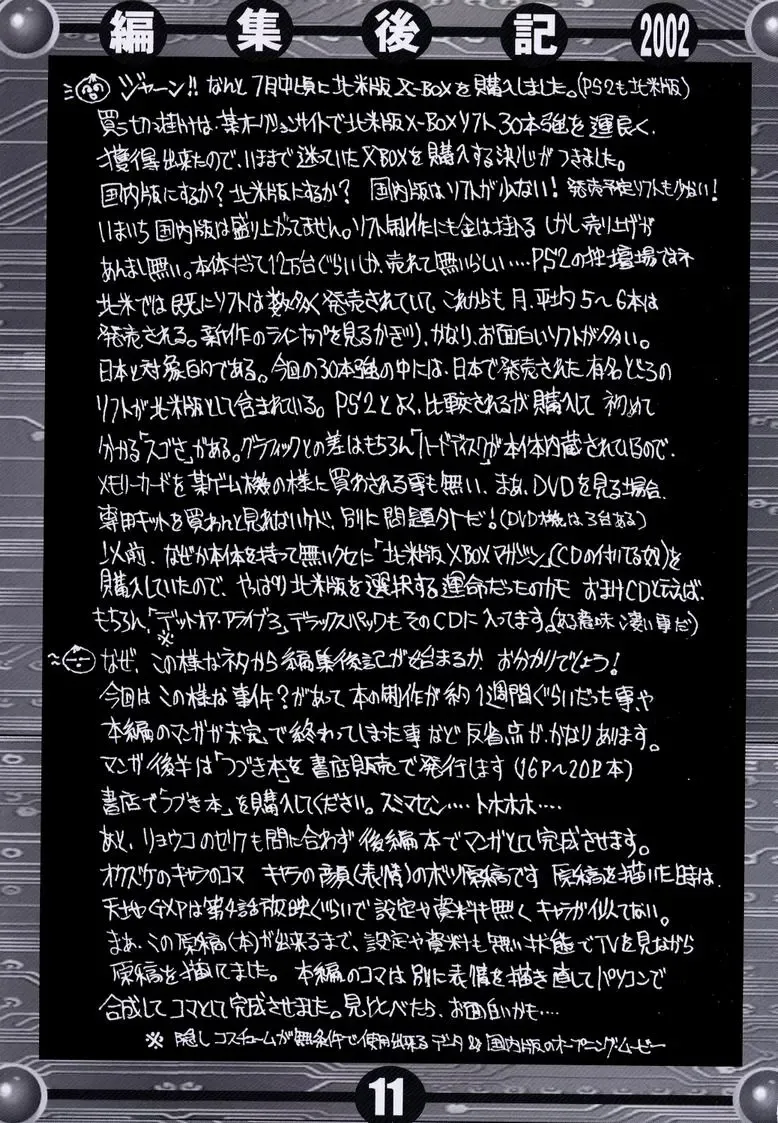 編集後記 2002
ジャーン!! なんと7月中頃に北米版X-BOXを購入しました。(PS2も北米版)
買う切っ掛けは、某オークションサイトで北米版X-BOXソフト30本強を運良く、
獲得出来たので、いままで迷っていたXBOXを購入する決心がつきました。
国内版にするか？北米版にするか？ 国内版はソフトが少ない！発売予定ソフトも少ない！
いまいち国内版は盛り上がってません。ソフト制作にも金は掛る しかし売り上げが
あんまし無い。本体だって12万台ぐらいしか、売れて無いらしい‥‥PS2の独壇場ですネ
北米では既にソフトは数多く発売されていて、これからも月、平均5〜6本は
発売される。新作のラインナップを見るかぎり、かなり、お面白いソフトが多い。
日本と対象的である。今回の30本強の中には、日本で発売された有名どころの
ソフトが北米版として含まれている。PS2とよく、比較されるが購入して 初めて
分かる「スゴさ」がある。グラフィックとの差はもちろん「ハードディスク」が本体内蔵されているので、
メモリーカードを某ゲーム機の様に買わされる事も無い、まあ、DVDを見る場合、
専用キットを買わんと見れないケド、別に問題外だ！(DVD機は3台ある)
以前、なぜか本体を持って無いクセに「北米版XBOXマガジン」(CDの付いてる奴)を
購入していたので、やっぱり北米版を選択する運命だったのかも おまけCDと云えば、
もちろん、「デットオア・アライブ3」デラックスパックもそのCDに入ってます。(ある意味凄い事だ)
※
なぜ、この様なネタから編集後記が始まるか お分かりでしょう！
今回はこの様な事件？があって本の制作が約1週間ぐらいだった事や
本編のマンガが未完、で終わってしまった事など反省点が、かなりあります。
マンガ後半は「つづき本」を書店販売で発行します(16P〜20P本)
書店で「つづき本」を購入してください。スミマセン‥‥トホホホ‥‥
あと、リョウコのゼクも間に合わず後編本でマンガとして完成させます。
オクズケのキャラのコマ キャラの顔(表情)のボツ原稿です 原稿を描いた時は、
天地GXPは第4話放映ぐらいで設定や資料も無く キャラが似てない。
まあ、この原稿(本)が出来るまで、設定や資料も無い状態でTVを見ながら
原稿を描いてました。 本編のコマは別に表情を描き直してパソコンで
合成してコマとして完成させました。見比べたら、お面白いかも‥‥
※ 隠しコスチュームが無条件で使用出来るデータ&国内版のオープニングムービー
11